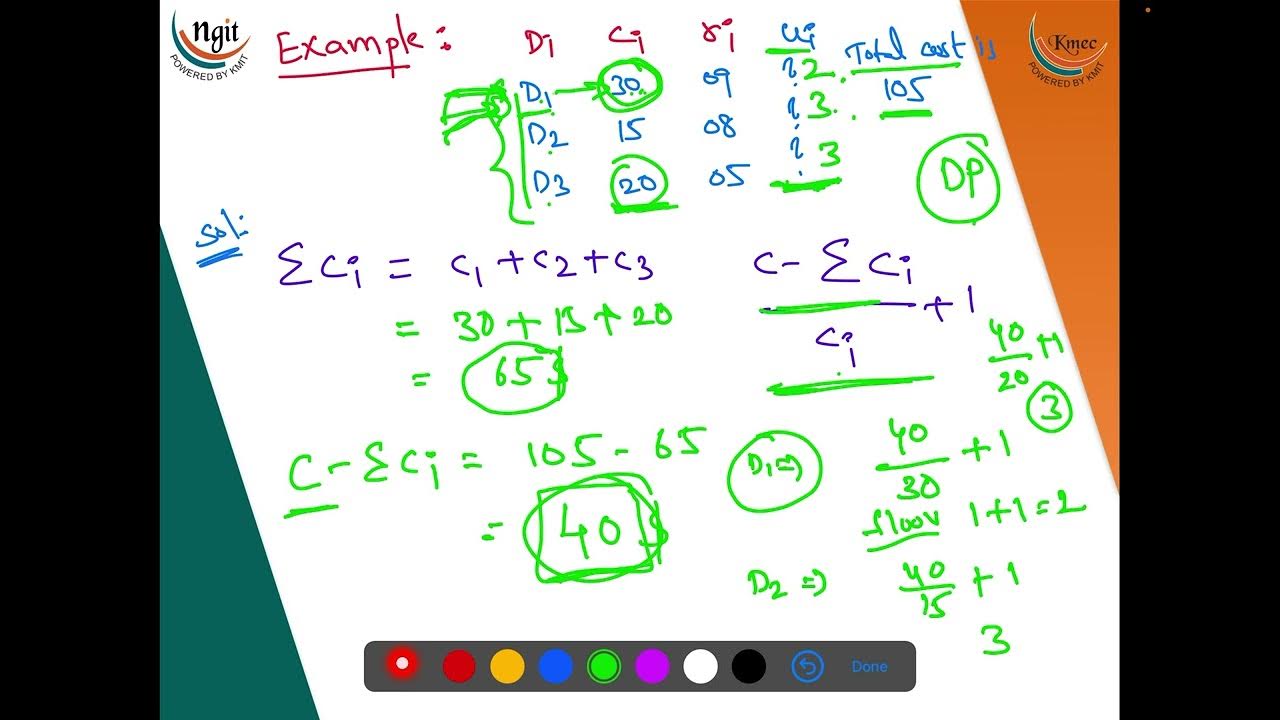 Ngit
POWERED BY KMIT
Kmec
POWERED BY KMIT
Example :
Di Ci ri ui
D1 → 30 09 ? 2
D2 15 08 ? 3
D3 20 05 ? 3
Total cost is
105
DP
Sol:
ΣCi = C1 + C2 + C3
= 30 + 15 + 20
= 65
C - ΣCi
Ci
+ 1
40
20
+1
3
C - ΣCi = 105 - 65
= 40
D1 =>
40
30
+ 1
floor 1+1=2
D2 =>
40
15
+ 1
3
Done